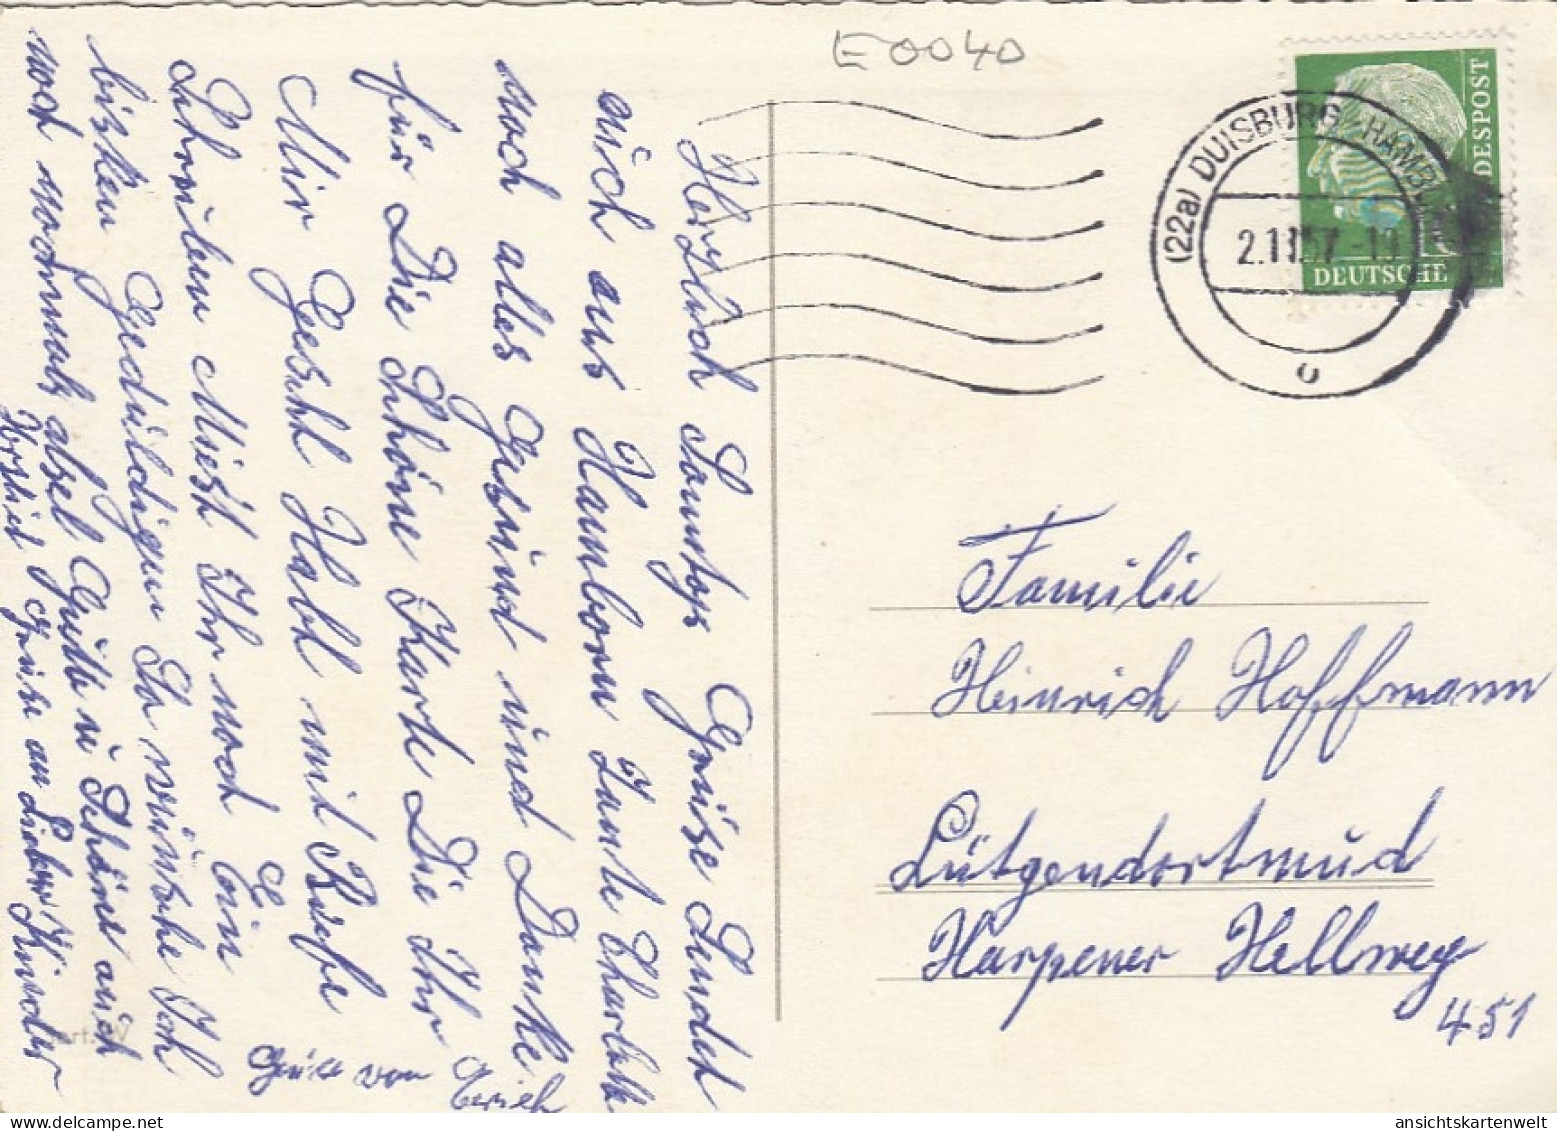 E0040
(22a) DUISBURG-HAMB
2.1 57-10
u
DEUTSCHE
DESPOST
Herzlich Samstags Grüse Sendet
euich aus Hamborn Tante Charlotte
noch alles Gesund und Danke
für Die Schöne Karte Die Ihr
Mir Geschl Habt mit Rufe
Schreiben Miest Ihr noch Ein
bisken Geduldigen So wünsche Ich
noch nochmals alles Gutte u Schöne auch
Grüse an Lieben Kinder
Grüse von
Familie
Heinrich Hoffmann
Lütgendortmud
Harpener Hellweg
451
ansichtskartenwelt